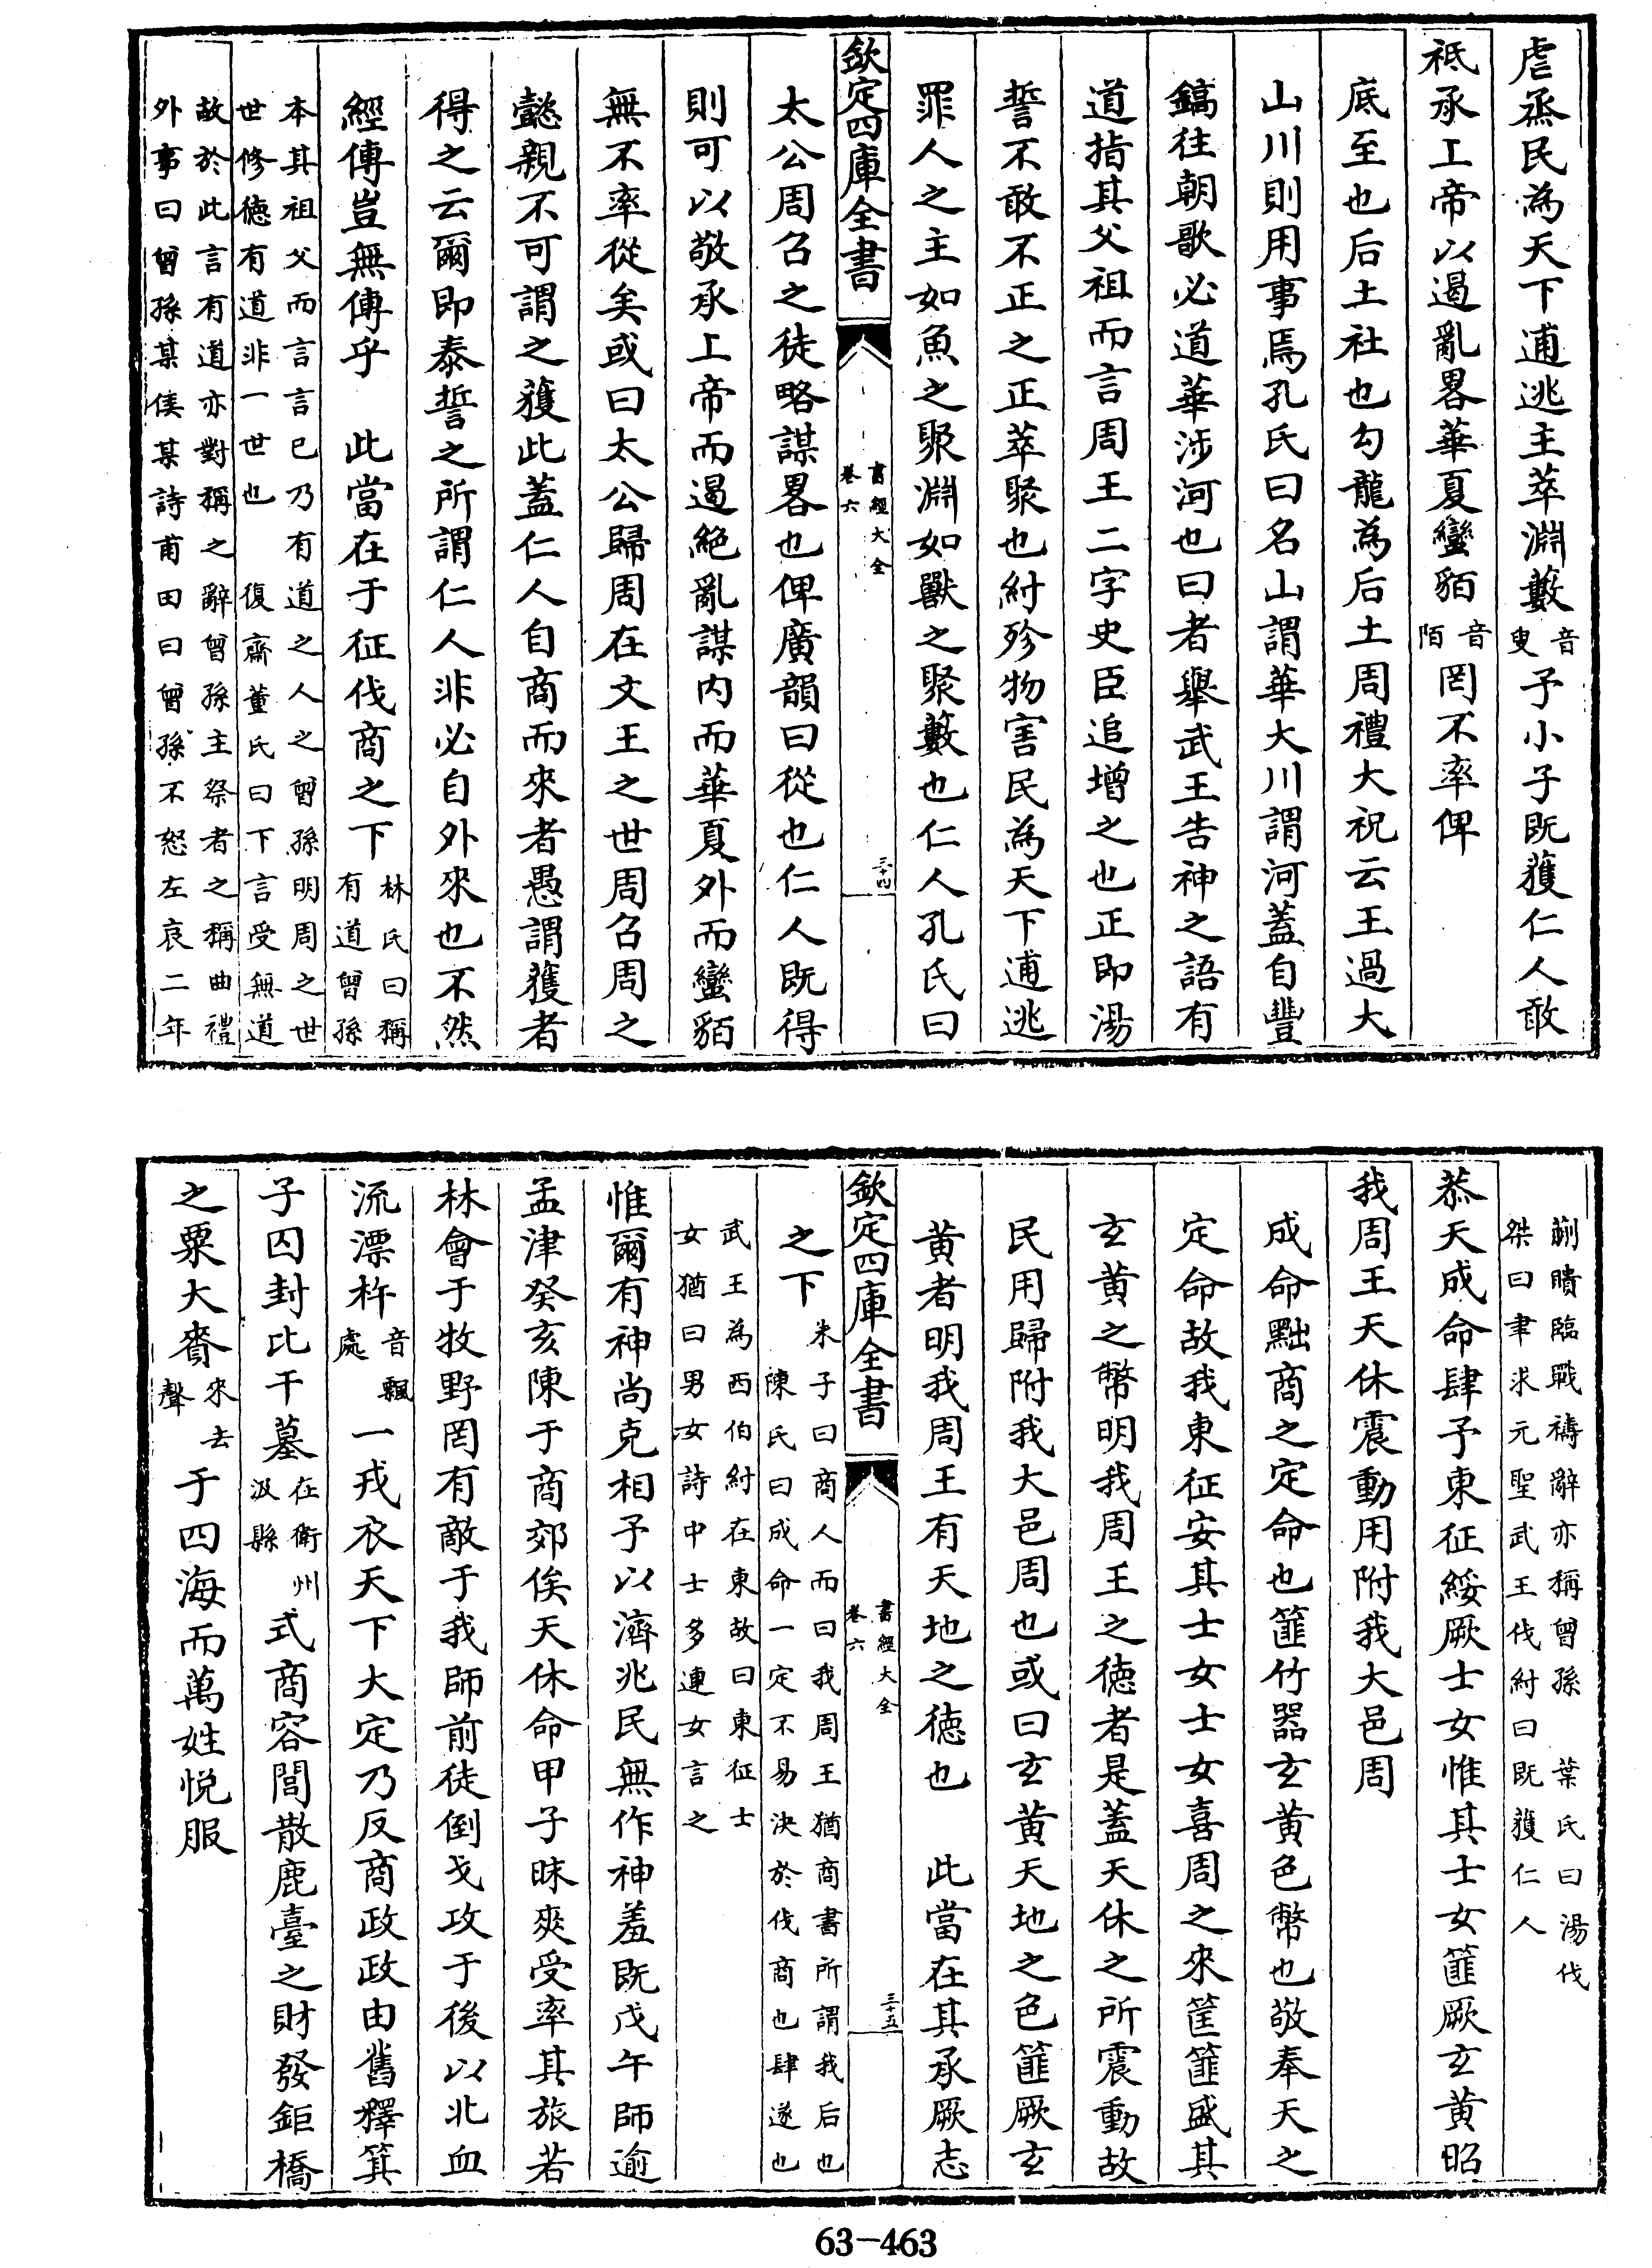 虐烝民為天下逋逃主萃淵藪音叟予小子既獲仁人敢
祗承上帝以遏亂畧華夏蠻貊音陌罔不率俾
底至也后土社也勾龍為后土周禮大祝云王過大
山川則用事焉孔氏曰名山謂華大川謂河蓋自豐
鎬往朝歌必道華涉河也曰者舉武王告神之語有
道指其父祖而言周王二字史臣追增之也正即湯
誓不敢不正之正萃聚也紂殄物害民為天下逋逃
罪人之主如魚之聚淵如獸之聚藪也仁人孔氏曰
欽定四庫全書
書經大全
卷六
三十四
太公周召之徒略謀畧也俾廣韻曰從也仁人既得
則可以敬承上帝而遏絶亂謀内而華夏外而蠻貊
無不率從矣或曰太公歸周在文王之世周召周之
懿親不可謂之獲此蓋仁人自商而來者愚謂獲者
得之云爾即泰誓之所謂仁人非必自外來也不然
經傳豈無傳乎 此當在于征伐商之下
林氏曰稱
有道曾孫
本其祖父而言言已乃有道之人之曾孫明周之世
世修德有道非一世也 復齋董氏曰下言受無道
故於此言有道亦對稱之辭曾孫主祭者之稱曲禮
外事曰曾孫某侯某詩甫田曰曾孫不怒左哀二年
蒯聵臨戰禱辭亦稱曾孫 葉氏曰湯伐
桀曰聿求元聖武王伐紂曰既獲仁人
恭天成命肆予東征綏厥士女惟其士女篚厥玄黄昭
我周王天休震動用附我大邑周
成命黜商之定命也篚竹器玄黄色幣也敬奉天之
定命故我東征安其士女士女喜周之來筐篚盛其
玄黄之幣明我周王之德者是蓋天休之所震動故
民用歸附我大邑周也或曰玄黄天地之色篚厥玄
黄者明我周王有天地之德也 此當在其承厥志
欽定四庫全書
書經大全
卷六
三十五
之下
朱子曰商人而曰我周王猶商書所謂我后也
陳氏曰成命一定不易決於伐商也肆遂也
武王為西伯紂在東故曰東征士
女猶曰男女詩中士多連女言之
惟爾有神尚克相予以濟兆民無作神羞既戊午師逾
孟津癸亥陳于商郊俟天休命甲子昧爽受率其旅若
林會于牧野罔有敵于我師前徒倒戈攻于後以北血
流漂杵音飄處一戎衣天下大定乃反商政政由舊釋箕
子囚封比干墓在衛州汲縣式商容閭散鹿臺之財發鉅橋
之粟大賚來去聲于四海而萬姓悅服
63-463